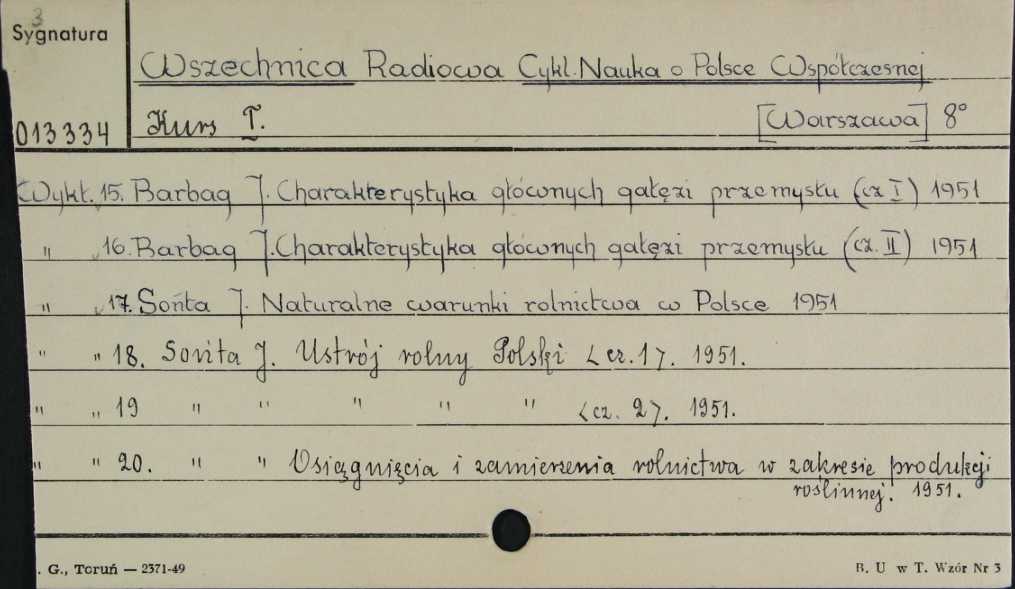 3
Sygnatura
Wszechnica Radiowa Cykl. Nauka o Polsce Współczesnej
013334 Kurs I. [Warszawa] 8°
Wykł. 15. Barbag J. Charakterystyka głównych gałęzi przemysłu (cz I) 1951
" 16. Barbag J. Charakterystyka głównych gałęzi przemysłu (cz. II) 1951
" 17. Sońta J. Naturalne warunki rolnictwa w Polsce 1951
" " 18. Sonta J. Ustrój rolny Polski <cz. 1>. 1951.
" " 19 " " " " " <cz. 2>. 1951.
" " 20. " " Osięgnięcia i zamierzenia rolnictwa w zakresie produkcji
roślinnej. 1951.
. G., Toruń — 2371-49 B. U w T. Wzór Nr 3